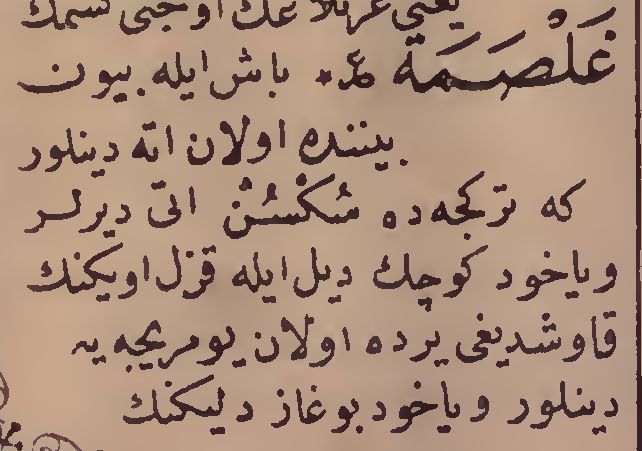 يعني غربلا نمك اوجبي كسمك
غَلْصَمَة عر باش ايله بيون
بيننده اولان اته دينلور
كه تركجه ده سُكْسُنْ اتى ديرلر
وياخود كوچك ديل ايله قزل اويكنك
قاوشديغى يرده اولان يومريجه يه
دينلور وياخود بوغاز دليكنك